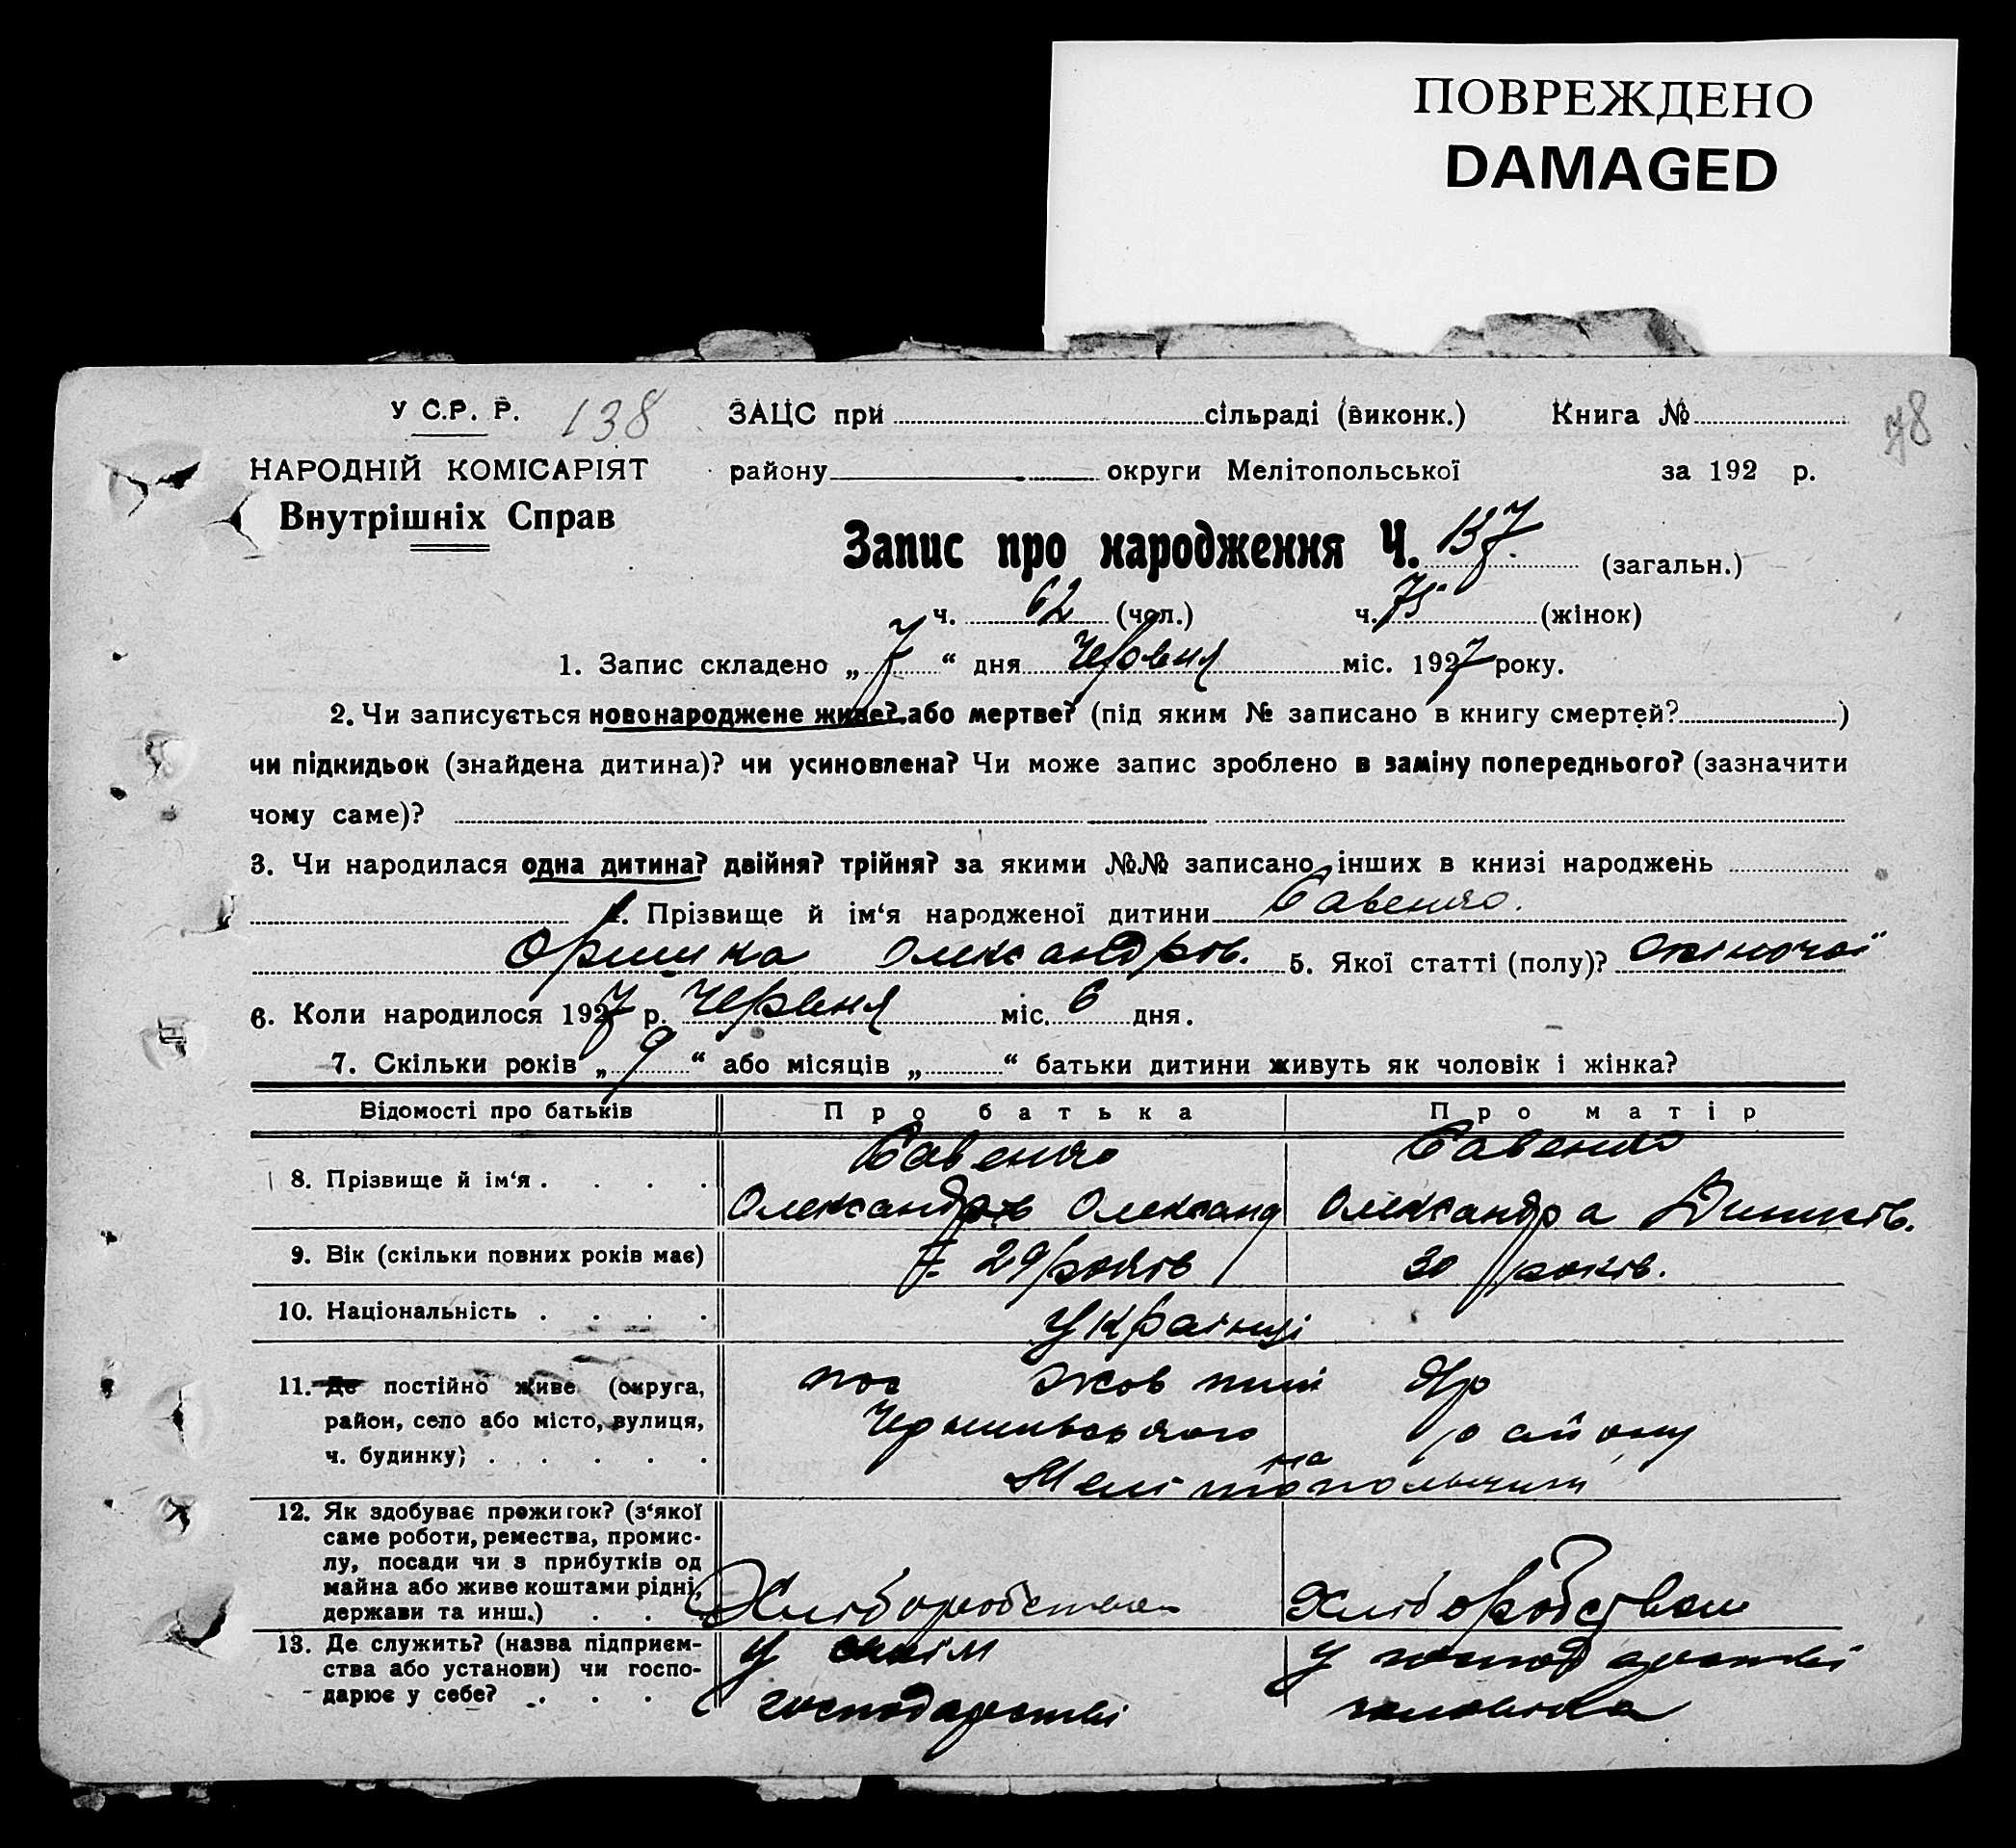 ПОВРЕЖДЕНО
DAMAGED
У С.Р. Р. 138 ЗАЦС при сільраді (виконк.) Книга № 78
НАРОДНІЙ КОМІСАРІЯТ району округи Мелітопольської за 192 р.
Внутрішніх Справ
Запис про народження Ч. 137 (загальн.)
ч. 62 (чол.) ч. 75 (жінок)
1. Запис складено „ 7 “ дня Червня міс. 1927 року.
2. Чи записується новонароджене живе? або мертве? (під яким № записано в книгу смертей? )
чи підкидьок (знайдена дитина)? чи усиновлена? Чи може запис зроблено в заміну попереднього? (зазначити
чому саме)?
3. Чи народилася одна дитина? двійня? трійня? за якими №№ записано інших в книзі народжень
4. Прізвище й ім‘я народженої дитини Савенко.
Оришка Олександров. 5. Якої статті (полу)? Жіночої
6. Коли народилося 1927 р. Червня міс. 6 дня.
7. Скільки років „ 9 “ або місяців „ “ батьки дитини живуть як чоловік і жінка?
Відомості про батьків Про батька Про матір
Савенко Савенко
8. Прізвище й ім‘я . . . . Олександр Олександ Олександра
9. Вік (скільки повних років має) 29 років 30 років.
10. Національність . . . . Українці
11. Де постійно живе (округа, пос Жовтий Яр
район, село або місто, вулиця, району
ч. будинку) . . . . . . на Мелітопольщині
12. Як здобуває прожиток? (з‘якої
саме роботи, ремества, промис-
лу, посади чи з прибутків од
майна або живе коштами рідні,
держави та инш.) . . . Хліборобством Хліборобством
13. Де служить? (назва підприєм- у своїм у господарстві
ства або установи) чи госпо-
дарює у себе? . . . господарстві чоловіка